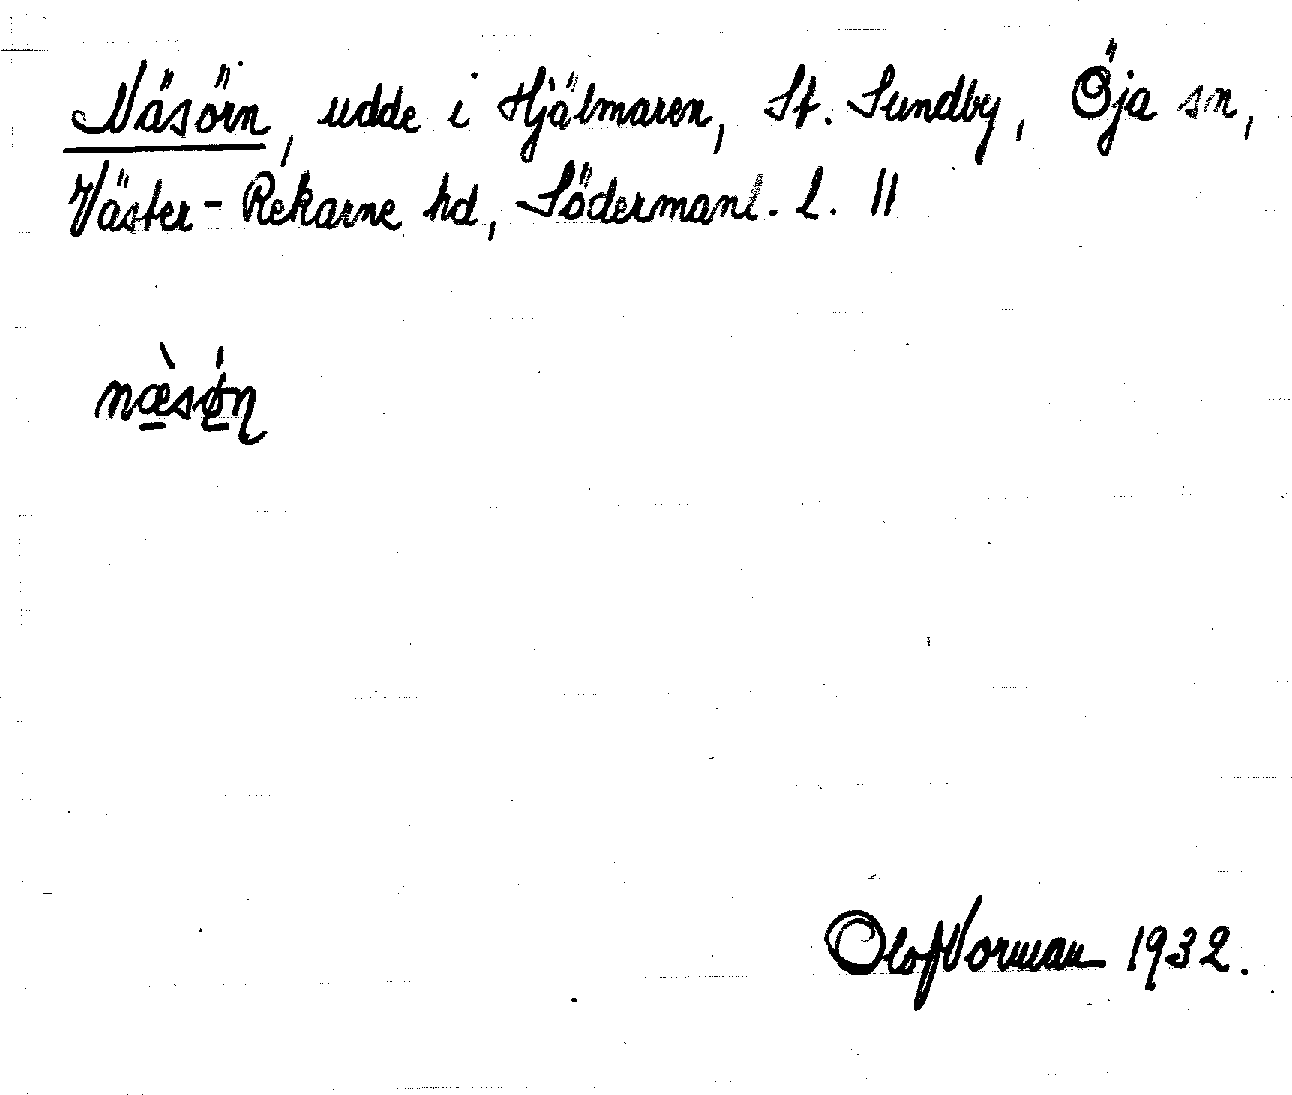 Näsörn, udde i Hjälmaren, St. Sundby, Öja sn,
Väster-Rekarne hd, Södermanl. L. 11
næ̀sǿn
Olof Norman 1932.